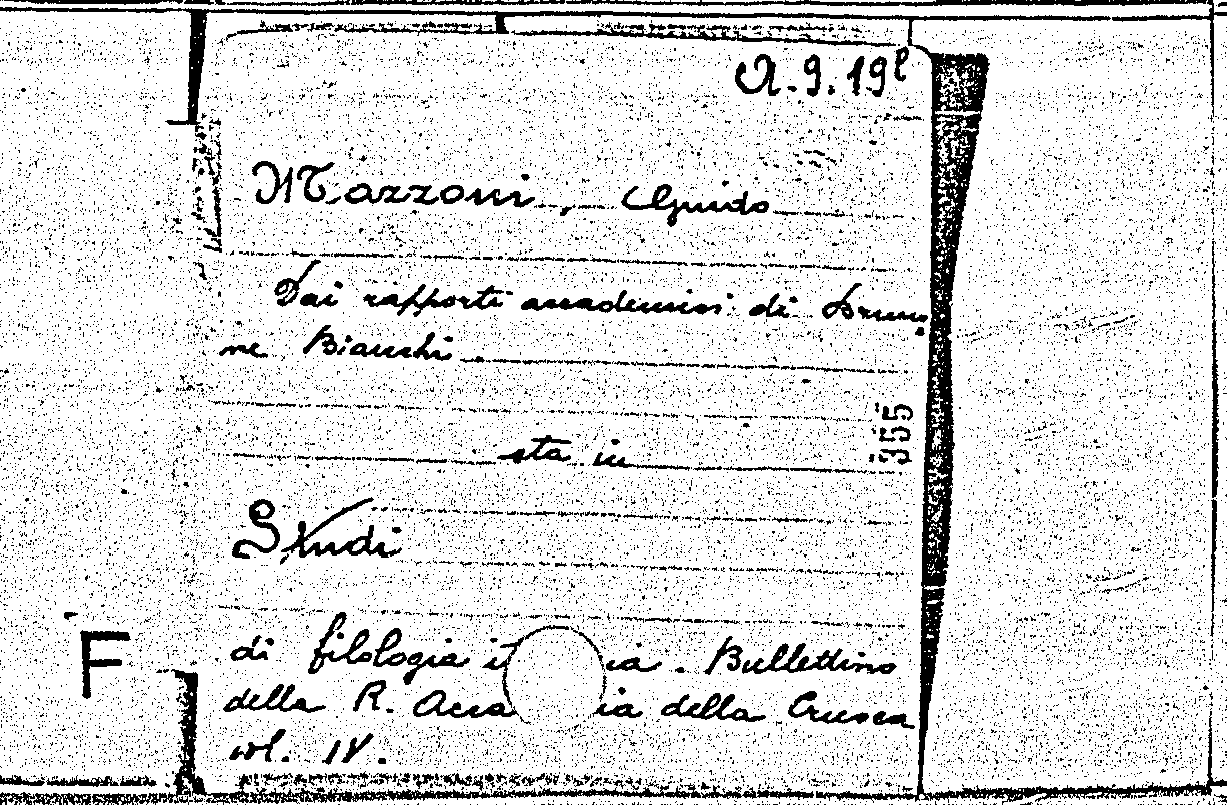 A.9.19
Mazzoni, Guido
Dai rapporti accademici di Bruno
ne Bianchi
355
sta in
Studi
di filologia it ia. Bullettino
F
della R. Acca ia della Crusca
vol. IV.